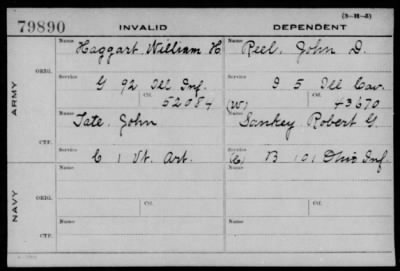 (3-H-5)
79890 INVALID DEPENDENT
ARMY
ORIG.
Name Haggart, William H
Name Reel, John D.
Service G 92 Ill Inf.
Service I 5 Ill Cav.
Ctf. 52084
(W) Ctf. 43670
CTF.
Name Tate, John
Name Sankey Robert G.
Service C 1 Vt. Art.
Service B 101 Ohio Inf.
NAVY
ORIG.
Name Ctf.
Name Ctf.
CTF.
Name
Name